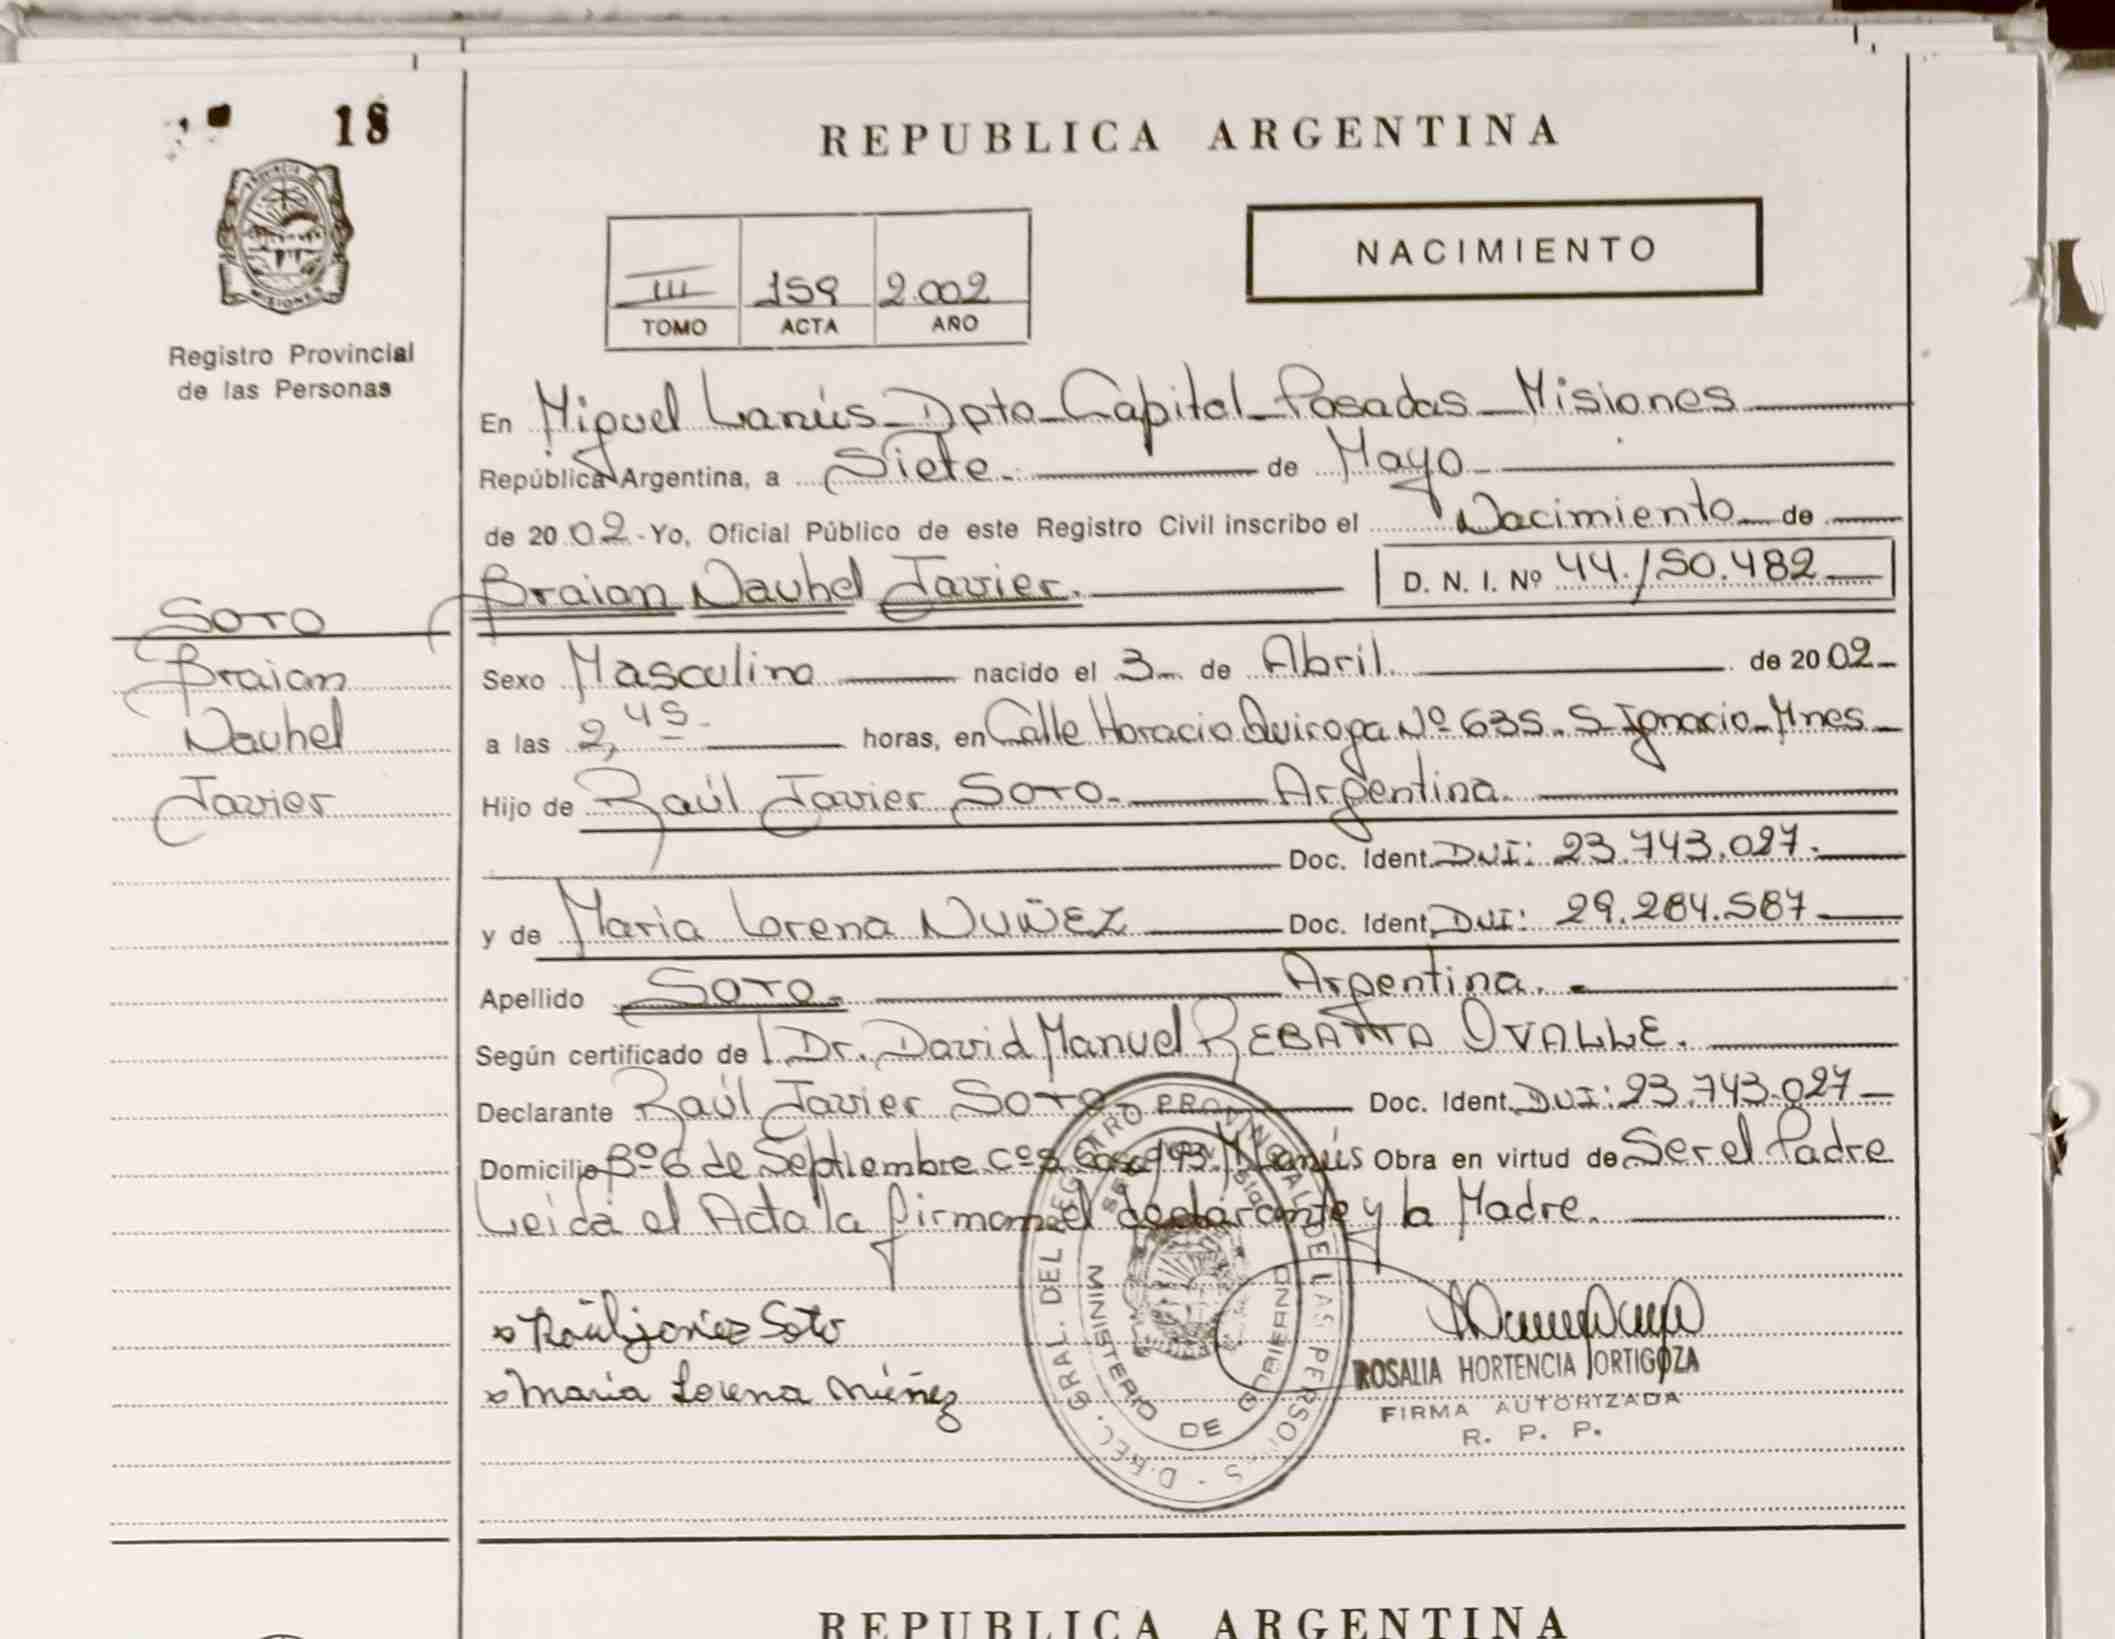 18
Registro Provincial
de las Personas
REPUBLICA ARGENTINA
III 159 2.002
TOMO ACTA AÑO
NACIMIENTO
En Miguel Lanús - Dpto - Capital - Posadas - Misiones
República Argentina, a Siete. de Mayo
de 2002 - Yo, Oficial Público de este Registro Civil inscribo el Nacimiento de
Braian Nauhel Javier. D. N. I. Nº 44.150.482
Sexo Masculino nacido el 3 de Abril. de 2002
a las 2,45 horas, en Calle Horacio Quiroga Nº 635. S. Ignacio - Mnes
Hijo de Raúl Javier Soto. Argentina.
Doc. Ident. DNI: 23.743.027.
y de Maria Lorena NUÑEZ Doc. Ident. DNI: 29.284.587
Apellido SOTO. Argentina.
Según certificado de Dr. David Manuel OVALLE.
Declarante Raúl Javier Soto Doc. Ident. DNI: 23.743.027
Domicilio Bº 6 de Septiembre Casa Lanús Obra en virtud de Ser el Padre
Leida el Acta la firman el declarante y la Madre.
SOTO
Braian
Nauhel
Javier
Raúl javier Soto
Maria Lorena Núñez
DIREC. GRAL. DEL REGISTRO PROVINCIAL DE LAS PERSONAS
MINISTERIO DE GOBIERNO
ROSALIA HORTENCIA ORTIGOZA
FIRMA AUTORIZADA
R. P. P.
REPUBLICA ARGENTINA